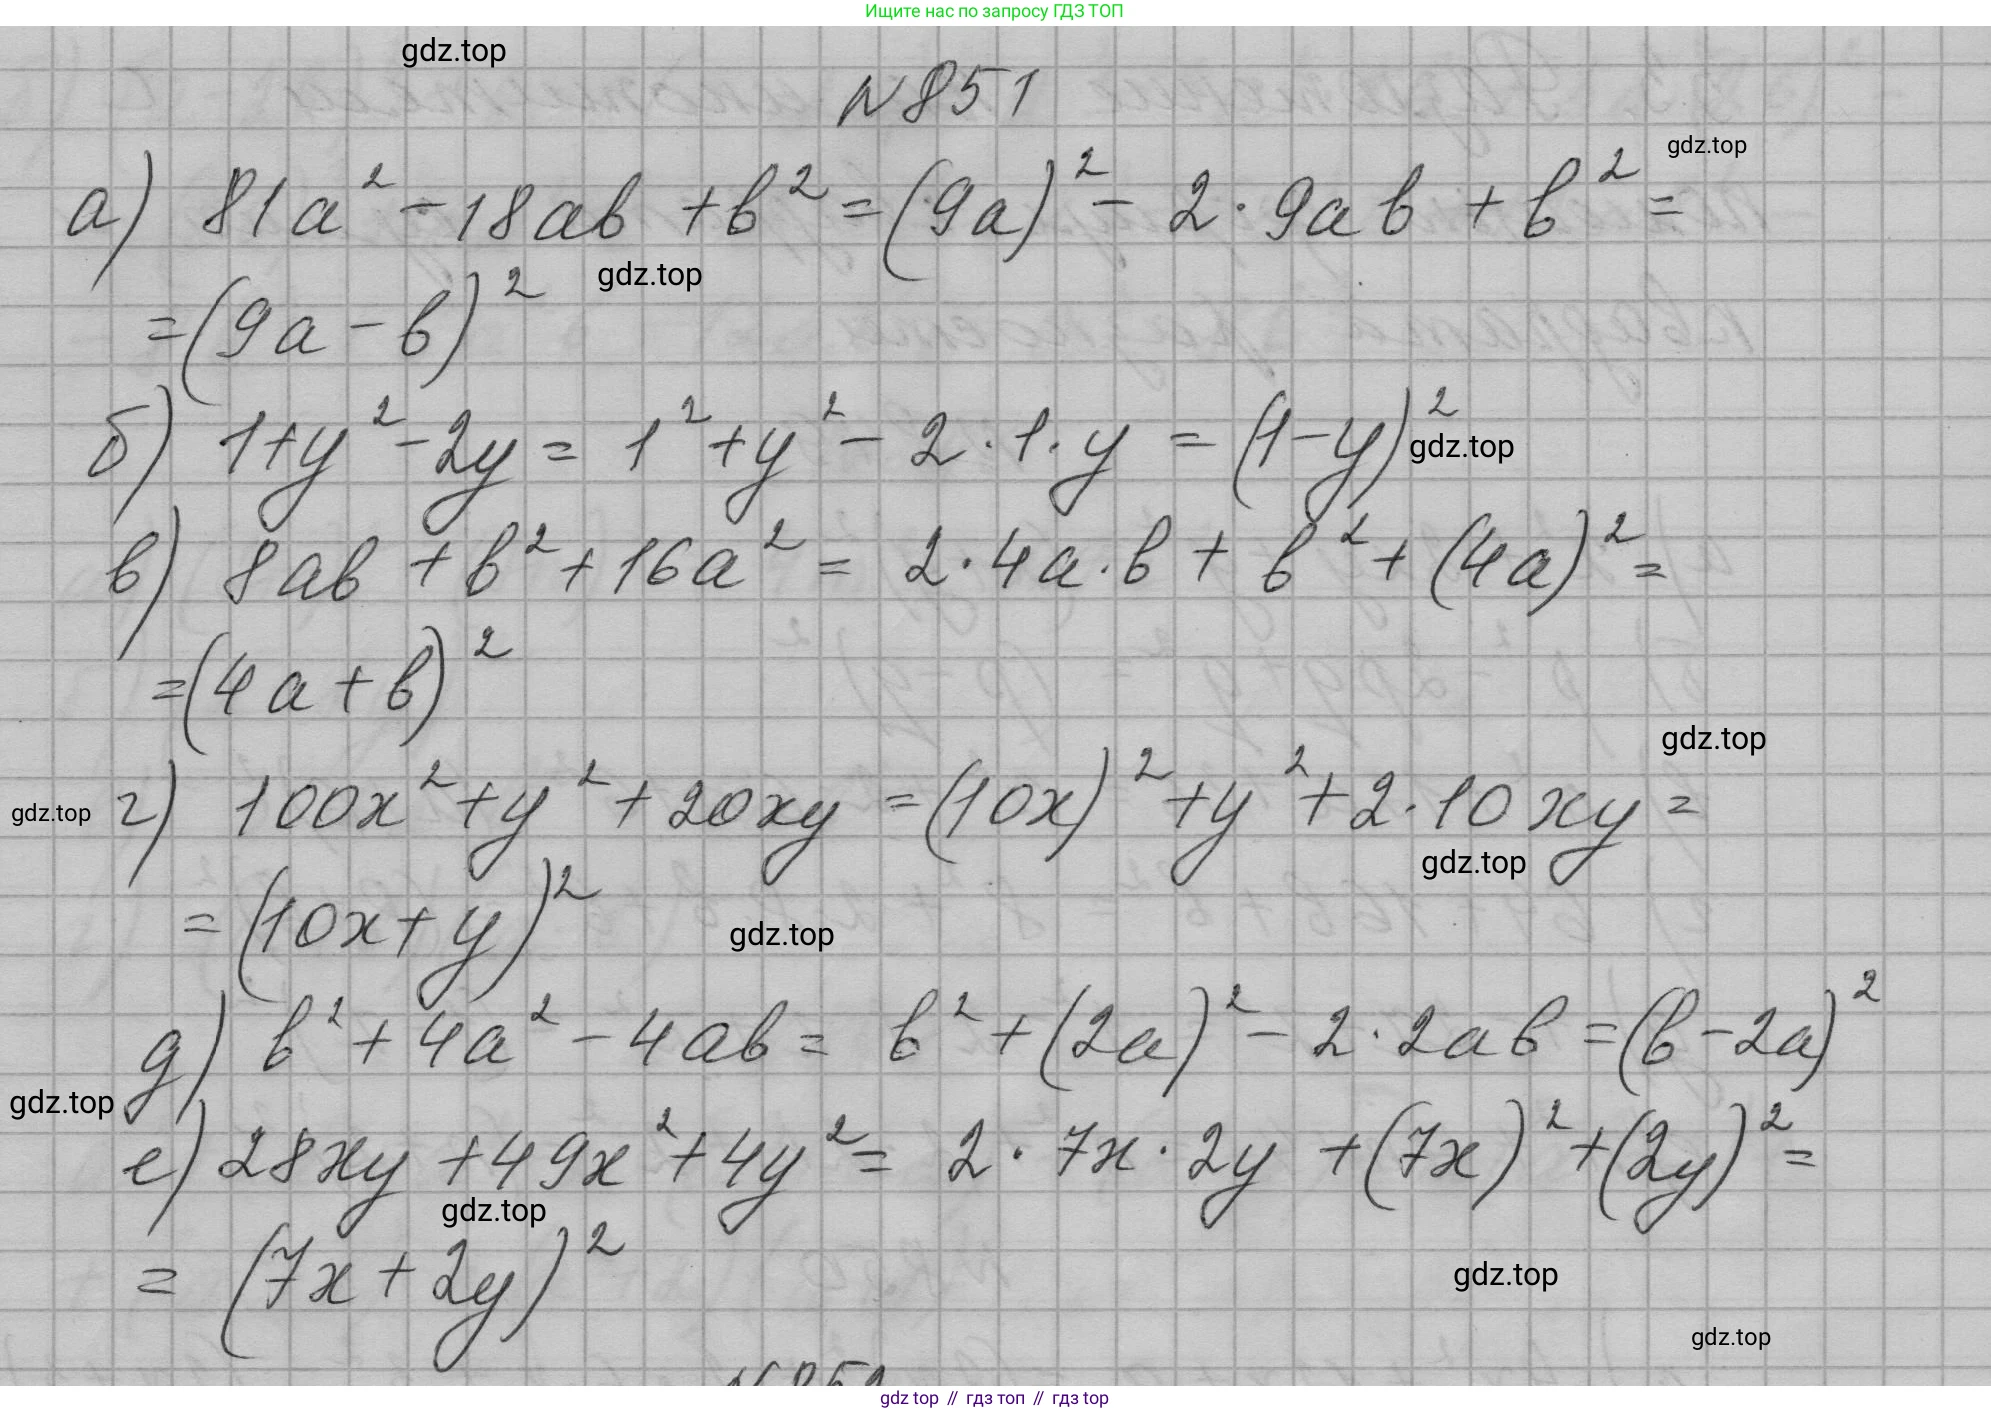 Ищите нас по запросу ГДЗ ТОП
gdz.top
N851
gdz.top
а) 81a² - 18ab + b² = (9a)² - 2 · 9ab + b² =
gdz.top
= (9a - b)²
б) 1 + y² - 2y = 1² + y² - 2 · 1 · y = (1 - y)²
gdz.top
в) 8ab + b² + 16a² = 2 · 4a · b + b² + (4a)² =
= (4a + b)²
gdz.top
gdz.top
г) 100x² + y² + 20xy = (10x)² + y² + 2 · 10xy =
gdz.top
= (10x + y)²
gdz.top
д) b² + 4a² - 4ab = b² + (2a)² - 2 · 2ab = (b - 2a)²
gdz.top
е) 28xy + 49x² + 4y² = 2 · 7x · 2y + (7x)² + (2y)² =
gdz.top
= (7x + 2y)²
gdz.top
gdz.top
gdz top // гдз топ // gdz top